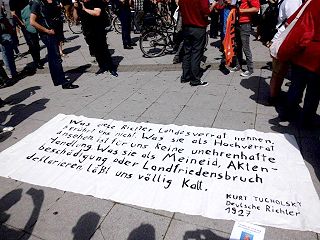 Was diese Richter Landesverrat nennen,
berührt uns nicht. Was sie als Hochverrat
ansehen, ist für uns keine unehrenhafte
Handlung. Was sie als Meineid, Akten-
beschädigung oder Landfriedensbruch
deklarieren, läßt uns völlig kalt.
KURT TUCHOLSKY
Deutsche Richter
1927